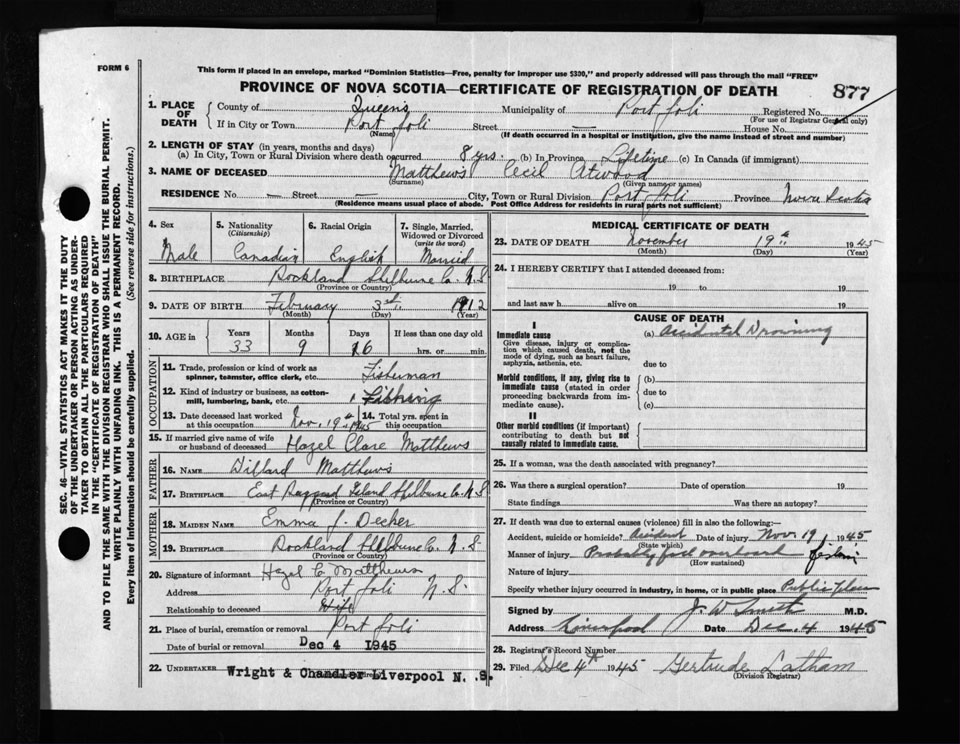 FORM 6
This form if placed in an envelope, marked "Dominion Statistics—Free, penalty for improper use $300," and properly addressed will pass through the mail "FREE"
PROVINCE OF NOVA SCOTIA—CERTIFICATE OF REGISTRATION OF DEATH
877
1. PLACE OF DEATH
County of Queens Municipality of Port Joli Registered No.
(For use of Registrar General only)
If in City or Town Port Joli Street — House No.
(Name) (If death occurred in a hospital or institution, give the name instead of street and number)
2. LENGTH OF STAY (in years, months and days)
(a) In City, Town or Rural Division where death occurred 8 yrs. (b) In Province Lifetime (c) In Canada (if immigrant)
3. NAME OF DECEASED Matthews Cecil Atwood
(Surname) (Given name or names)
RESIDENCE No. — Street — City, Town or Rural Division Port Joli Province Nova Scotia
(Residence means usual place of abode. Post Office Address for residents in rural parts not sufficient)
4. Sex 5. Nationality (Citizenship) 6. Racial Origin 7. Single, Married, Widowed or Divorced (write the word)
Male Canadian English Married
8. BIRTHPLACE Rockland Shelburne Co. N.S
(Province or Country)
9. DATE OF BIRTH February 3rd 1912
(Month) (Day) (Year)
10. AGE in Years Months Days If less than one day
33 9 16 hrs. or min.
OCCUPATION
11. Trade, profession or kind of work as spinner, teamster, office clerk, etc. Fisherman
12. Kind of industry or business, as cotton-mill, lumbering, bank, etc. Fishing
13. Date deceased last worked at this occupation Nov. 19th 1945 14. Total yrs. spent in this occupation
15. If married give name of wife or husband of deceased Hazel Clare Matthews
FATHER
16. NAME Dillard Matthews
17. BIRTHPLACE East Ragged Island Shelburne Co. N.S
(Province or Country)
MOTHER
18. MAIDEN NAME Emma J. Decker
19. BIRTHPLACE Rockland Shelburne Co. N.S
(Province or Country)
20. Signature of informant Hazel C Matthews
Address Port Joli N.S.
Relationship to deceased Wife
21. Place of burial, cremation or removal Port Joli
Date of burial or removal Dec 4 1945
22. UNDERTAKER Wright & Chandler Liverpool N. S.
MEDICAL CERTIFICATE OF DEATH
23. DATE OF DEATH November 19th 1945
(Month) (Day) (Year)
24. I HEREBY CERTIFY that I attended deceased from:
19 to 19
and last saw h alive on 19
CAUSE OF DEATH
I
Immediate cause (a) Accidental Drowning
Give disease, injury or complication which caused death, not the mode of dying, such as heart failure, asphyxia, asthenia, etc.
due to
Morbid conditions, if any, giving rise to immediate cause (stated in order proceeding backwards from immediate cause).
(b)
due to
(c)
II
Other morbid conditions (if important) contributing to death but not causally related to immediate cause.
25. If a woman, was the death associated with pregnancy?
26. Was there a surgical operation? Date of operation 19
State findings Was there an autopsy?
27. If death was due to external causes (violence) fill in also the following:—
Accident, suicide or homicide? Accident Date of injury Nov. 19 1945
(State which)
Manner of injury Probably fell overboard fishing
(How sustained)
Nature of injury
Specify whether injury occurred in industry, in home, or in public place Public place
Signed by J. W Smith M.D.
Address Liverpool Date Dec. 4 1945
28. Registrar's Record Number
29. Filed Dec 4th 1945 Gertrude Latham
(Division Registrar)
SEC. 46—VITAL STATISTICS ACT MAKES IT THE DUTY
OF THE UNDERTAKER OR PERSON ACTING AS UNDER-
TAKER TO OBTAIN ALL THE PARTICULARS REQUIRED
IN THE "CERTIFICATE OF REGISTRATION OF DEATH"
AND TO FILE THE SAME WITH THE DIVISION REGISTRAR WHO SHALL ISSUE THE BURIAL PERMIT.
WRITE PLAINLY WITH UNFADING INK. THIS IS A PERMANENT RECORD.
Every item of information should be carefully supplied. (See reverse side for instructions.)